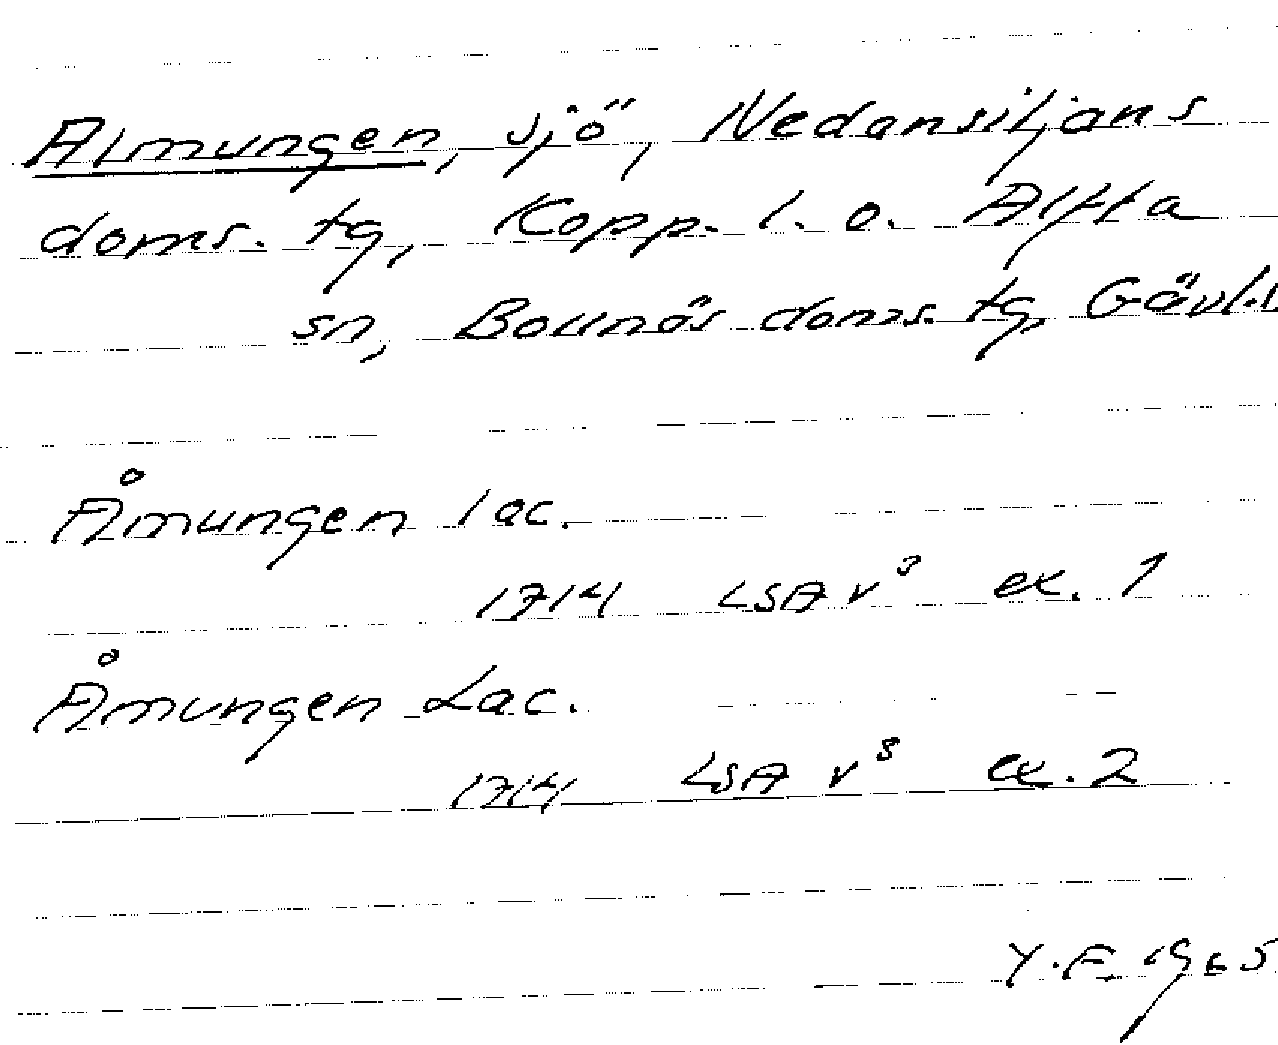 Almungen, sjö, Nedansiljans
doms. tg, Kopp. l. o. Alfta
sn, Bollnäs doms. tg, Gävl.l
Åmungen lac.
1714 LSA v⁸ ex. 1
Åmungen Lac.
1714 LSA v⁸ ex. 2
Y.F. 1965